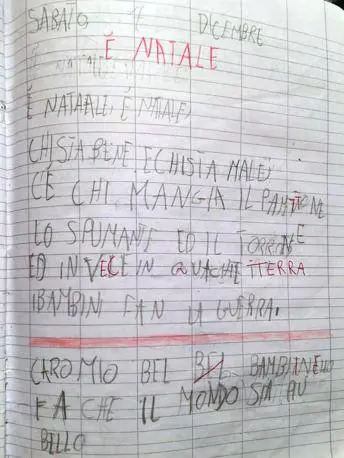 SABATO 16 DICEMBRE
É NATALE
É NATAALE, É NATALE,
CHI STA BENE E CHI STA MALE,
C'É CHI MANGIA IL PANTTONE
LO SPUMANTE ED IL TORRONE
ED INVECE IN QUACHE TTERRA
I BAMBINI FAN LA GUERRA.
CARO MIO BEL BEL BAMBIINELLO
FA CHE IL MONDO SIA PIÙ
BELLO